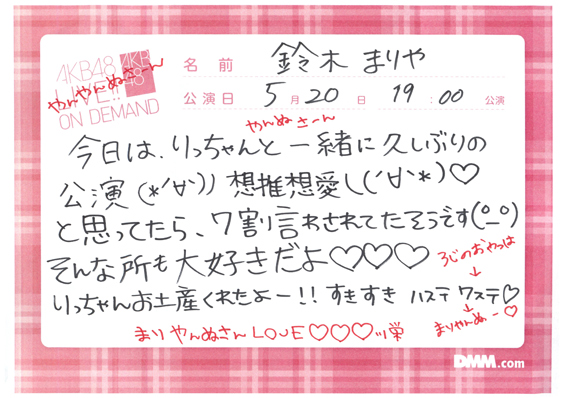 AKB48
LIVE!!
ON DEMAND
AKB
48
やんやんぬさーん
名前 鈴木 まりや
公演日 5月20日 19:00公演
やんぬさーん
今日は、りっちゃんと一緒に久しぶりの
公演(*'∀'))想推想愛し(('∀'*)♡
と思ってたら、7割言わされてたそうです(°_°)
そんな所も大好きだよ♡♡♡
3じのおやつは
↓
りっちゃんお土産くれたよー!!すきすき ハステ ワステ♡
↓
まりやんぬー♡
まりやんぬさんLOVE♡♡♡ツ栄
DMM.com